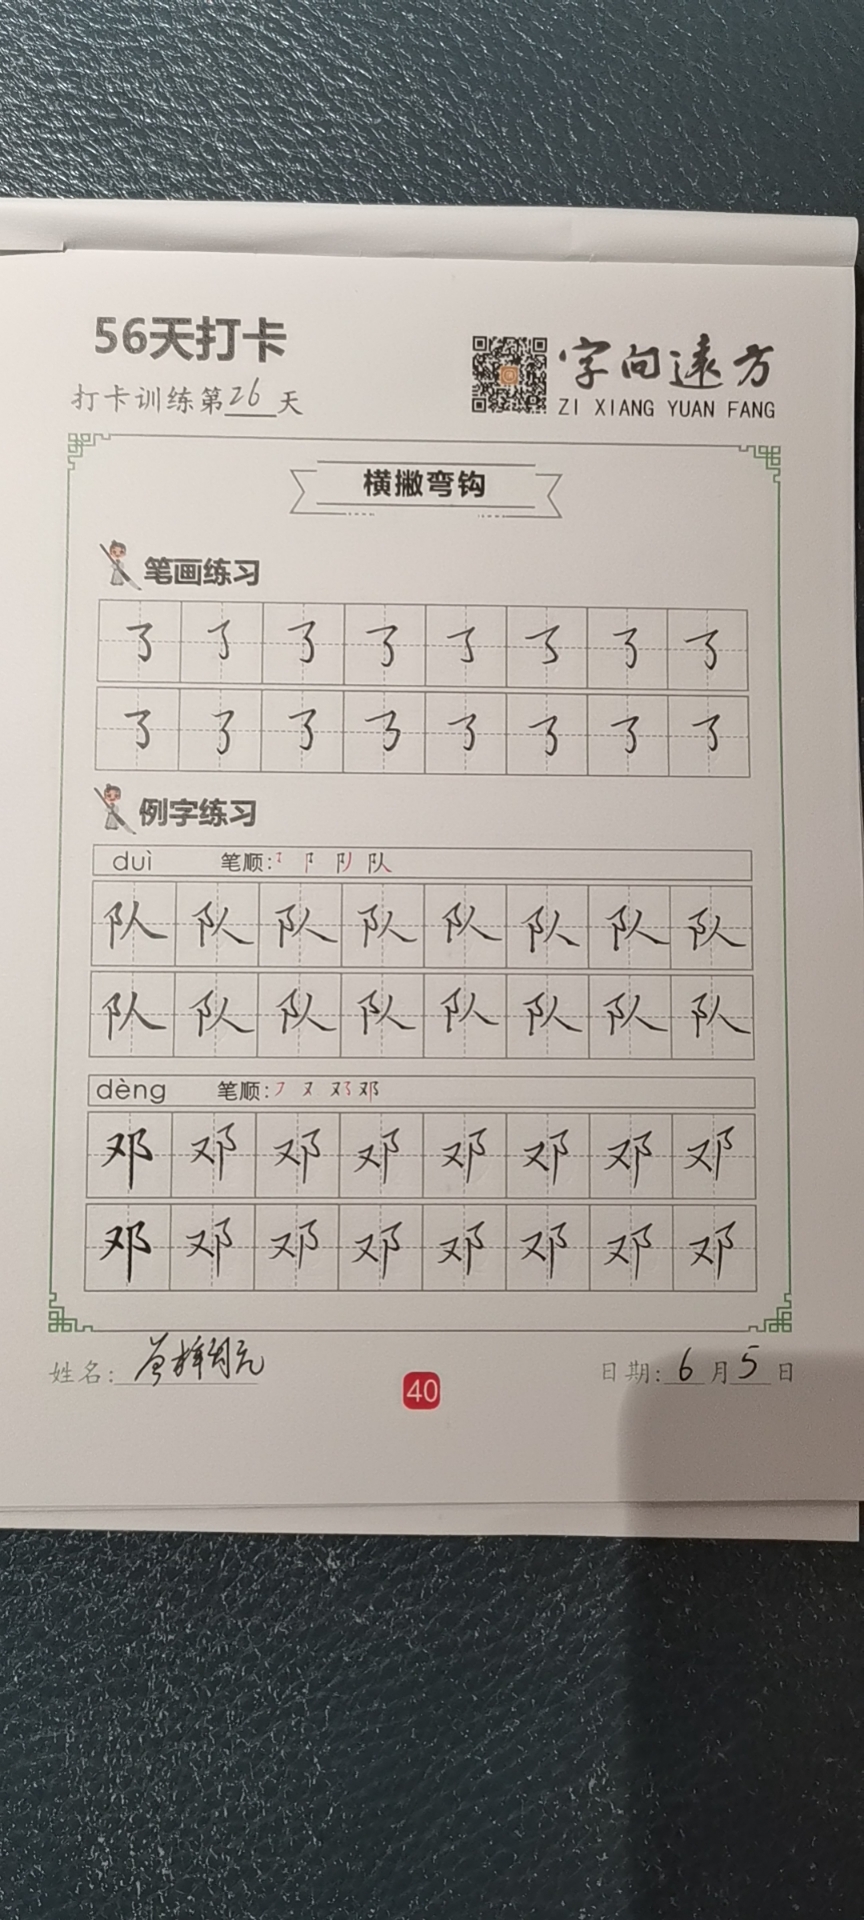 56天打卡
打卡训练第26天
字向远方
ZI XIANG YUAN FANG
横撇弯钩
笔画练习
例字练习
duì 笔顺:
队 队 队 队 队 队 队 队
队 队 队 队 队 队 队 队
dèng 笔顺:
邓 邓 邓 邓 邓 邓 邓 邓
邓 邓 邓 邓 邓 邓 邓 邓
姓名:
40
日期:6月5日